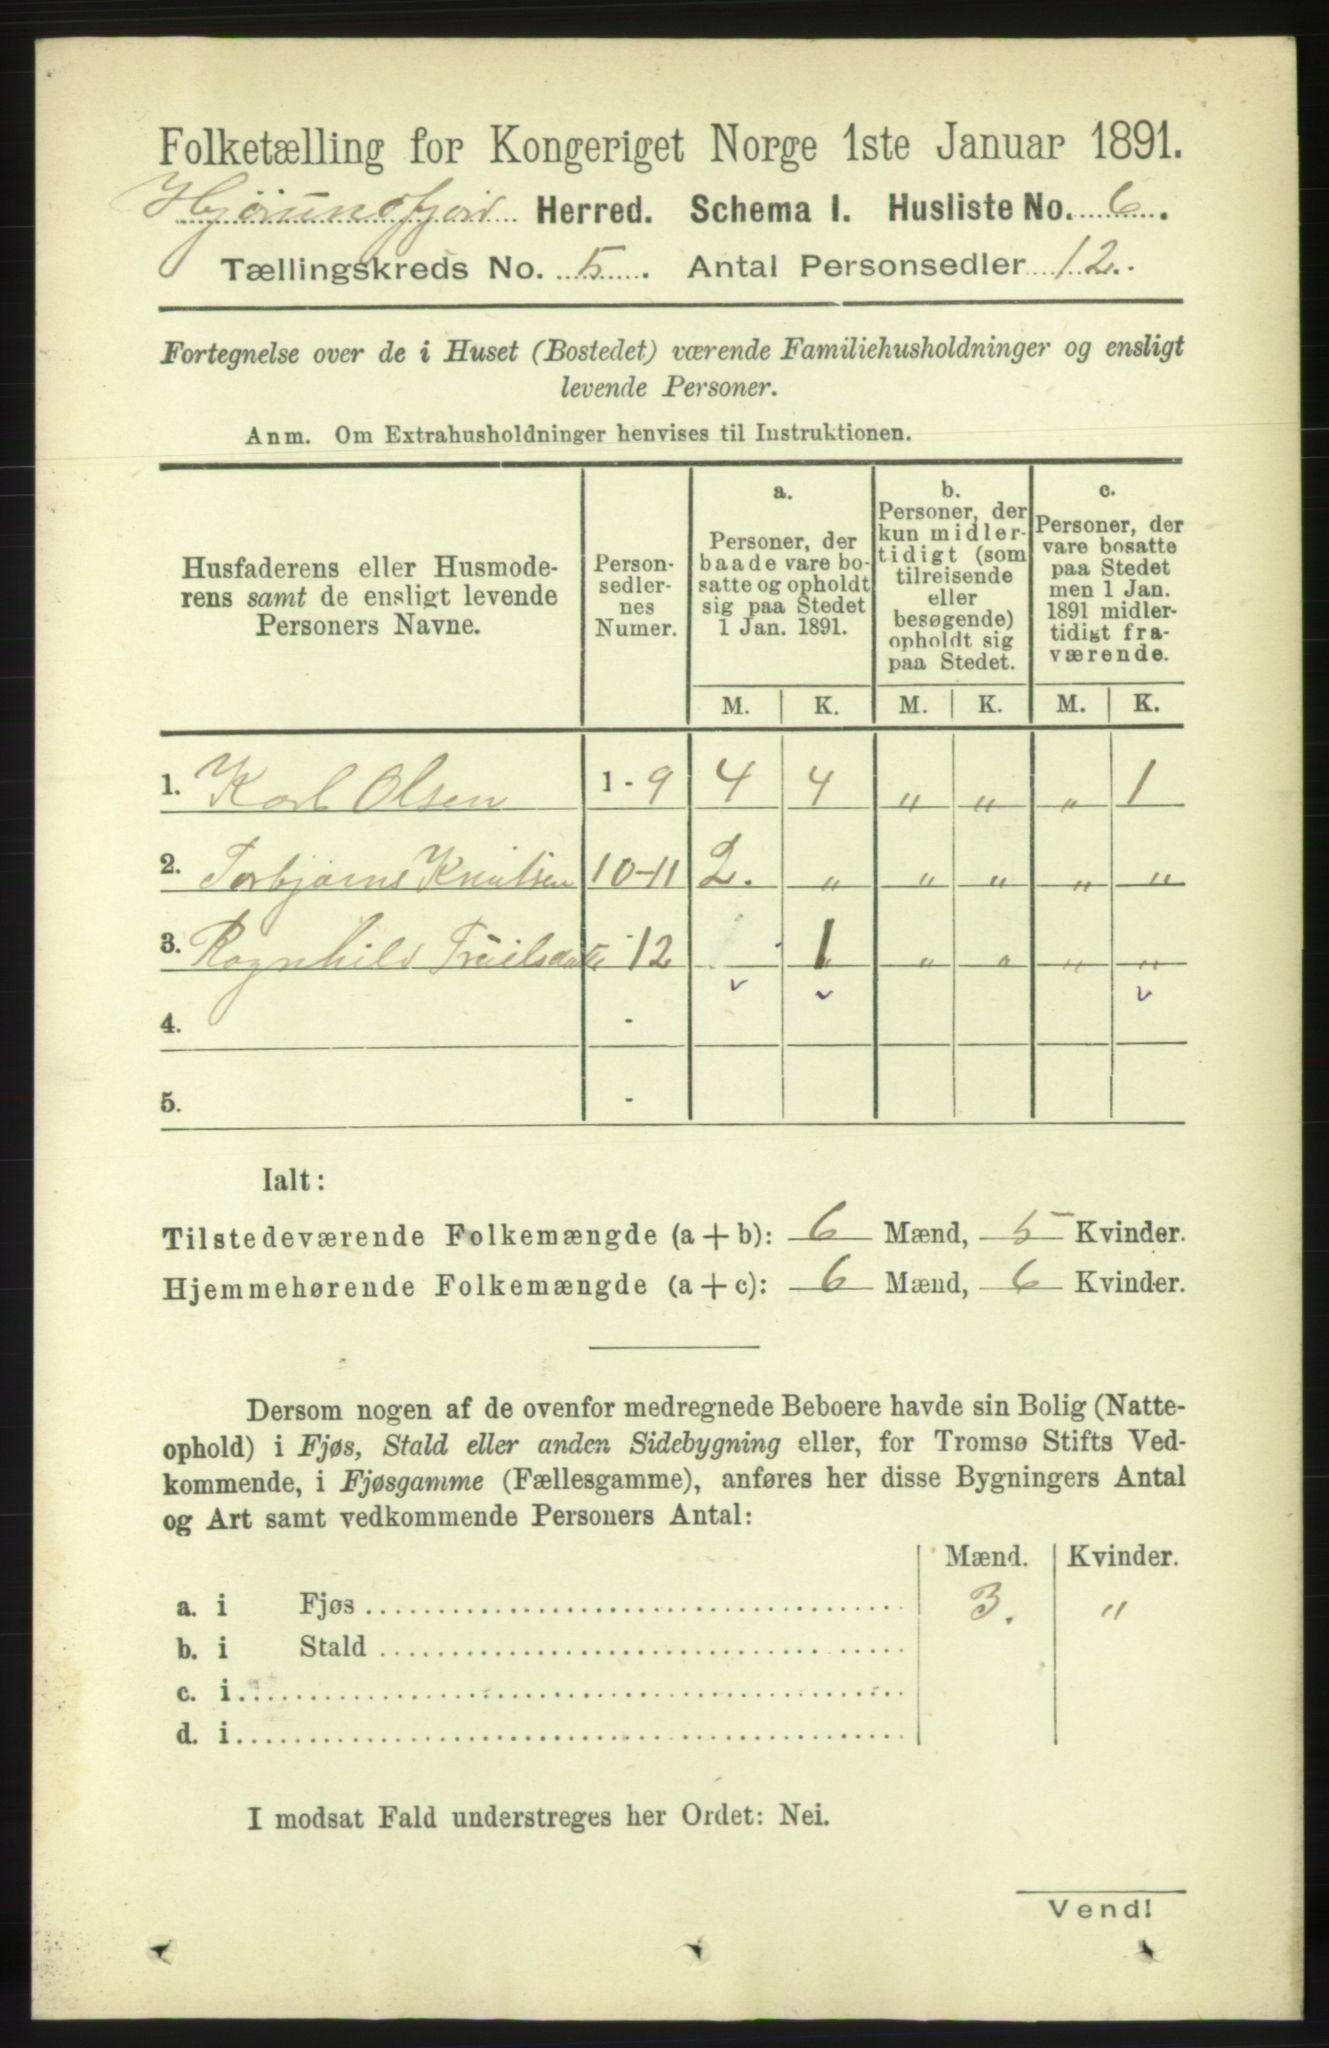 Folketælling for Kongeriget Norge 1ste Januar 1891.
Hjørundfjord Herred. Schema I. Husliste No. 6.
Tællingskreds No. 5. Antal Personsedler 12.
Fortegnelse over de i Huset (Bostedet) værende Familiehusholdninger og ensligt
levende Personer.
Anm. Om Extrahusholdninger henvises til Instruktionen.
Husfaderens eller Husmode-
rens samt de ensligt levende
Personers Navne.
Person-
sedler-
nes
Numer.
a.
Personer, der
baade vare bo-
satte og opholdt
sig paa Stedet
1 Jan. 1891.
b.
Personer, der
kun midler-
tidigt (som
tilreisende
eller
besøgende)
opholdt sig
paa Stedet.
c.
Personer, der
vare bosatte
paa Stedet
men 1 Jan.
1891 midler-
tidigt fra-
værende.
M. K. M. K. M. K.
1. Karl Olsen 1-9 4 4 " " " 1
2. Torbjørns Knutsen 10-11 2. " " " " "
3. Ragnhild 12 1 " " " "
4. -
5. -
Ialt:
Tilstedeværende Folkemængde (a+b): 6 Mænd, 5 Kvinder.
Hjemmehørende Folkemængde (a+c): 6 Mænd, 6 Kvinder.
Dersom nogen af de ovenfor medregnede Beboere havde sin Bolig (Natte-
ophold) i Fjøs, Stald eller anden Sidebygning eller, for Tromsø Stifts Ved-
kommende, i Fjøsgamme (Fællesgamme), anføres her disse Bygningers Antal
og Art samt vedkommende Personers Antal:
Mænd. Kvinder.
a. i Fjøs 3. "
b. i Stald
c. i
d. i
I modsat Fald understreges her Ordet: Nei.
Vend!